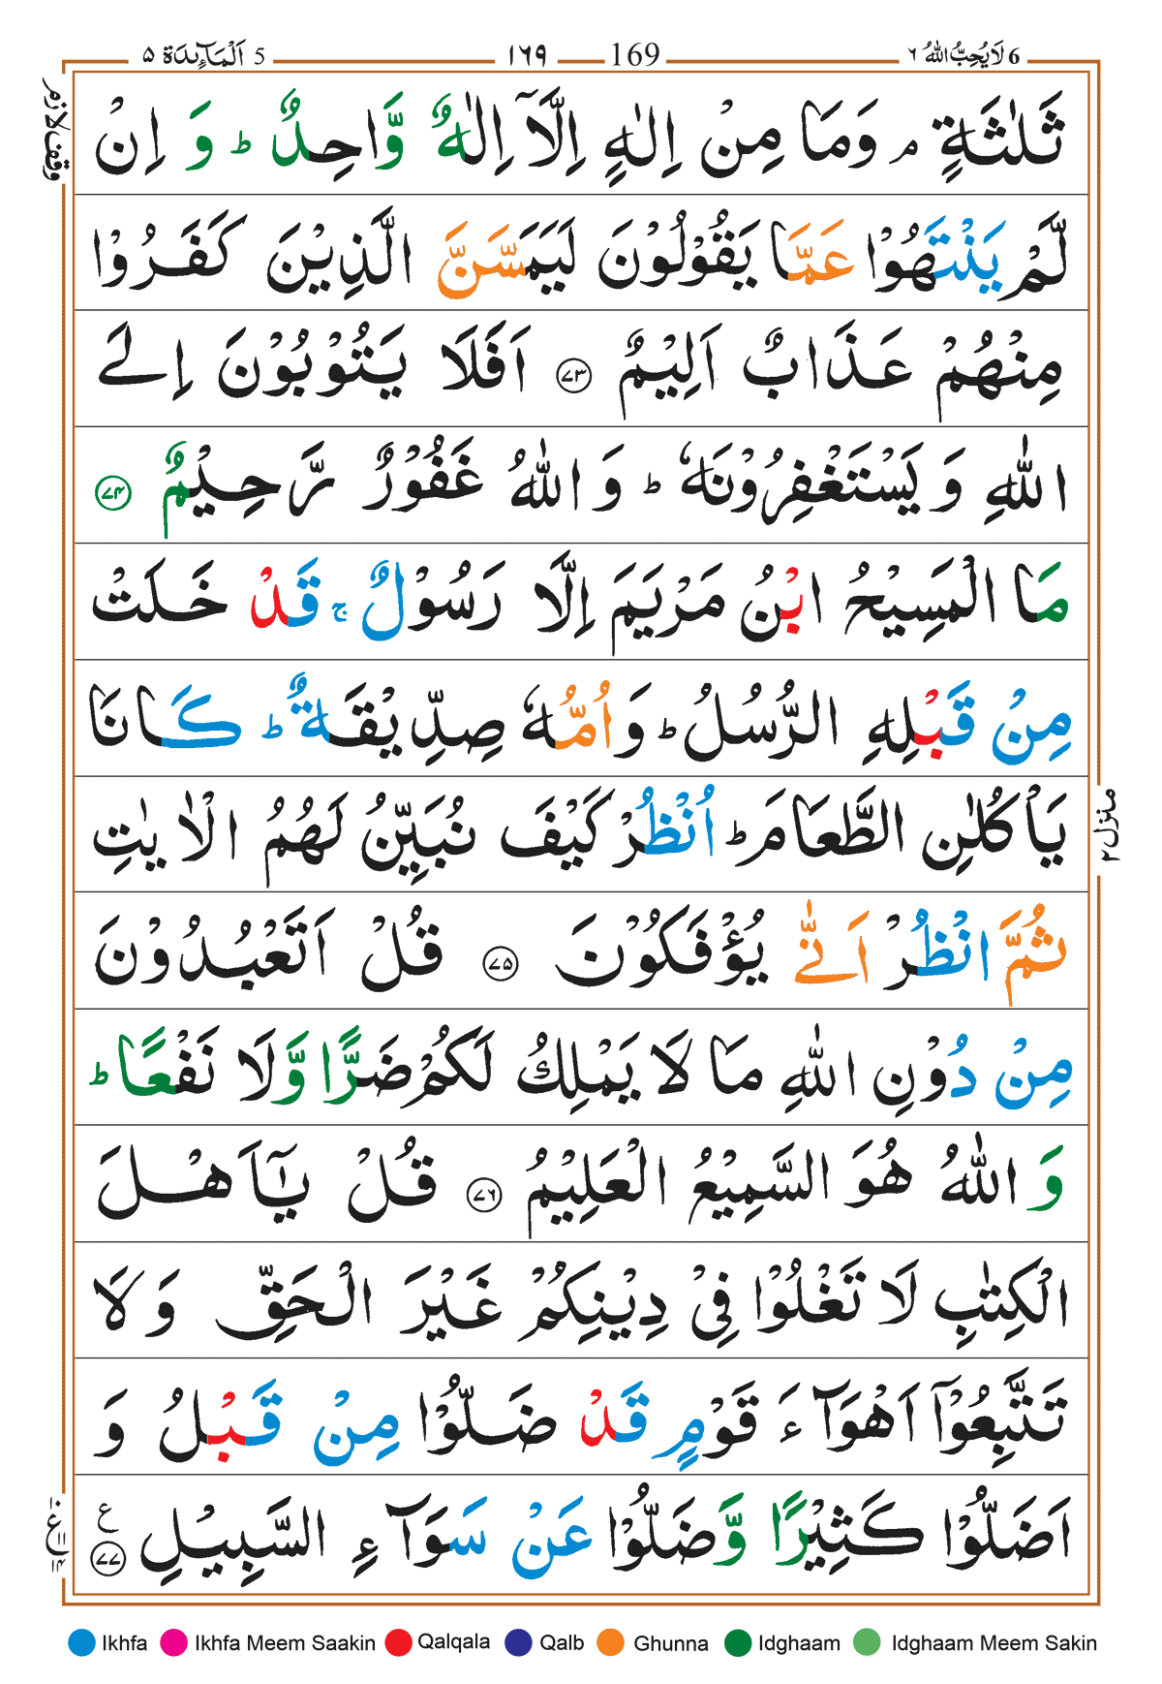 6 لَا يُحِبُّ اللهُ ٦ 169 ١٦٩ 5 اَلْمَآئِدَة ٥
وقف لازم
ثَلٰثَةٍ ۘ وَمَا مِنْ اِلٰهٍ اِلَّاۤ اِلٰهٌ وَّاحِدٌ ؕ وَ اِنْ
لَّمْ يَنْتَهُوْا عَمَّا يَقُوْلُوْنَ لَيَمَسَّنَّ الَّذِيْنَ كَفَرُوْا
مِنْهُمْ عَذَابٌ اَلِيْمٌ ﴿۷۳﴾ اَفَلَا يَتُوْبُوْنَ اِلَى
اللهِ وَ يَسْتَغْفِرُوْنَهٗ ؕ وَ اللهُ غَفُوْرٌ رَّحِيْمٌ ﴿۷۴﴾
مَا الْمَسِيْحُ ابْنُ مَرْيَمَ اِلَّا رَسُوْلٌ ۚ قَدْ خَلَتْ
مِنْ قَبْلِهِ الرُّسُلُ ؕ وَ اُمُّهٗ صِدِّيْقَةٌ ؕ كَانَا
يَاْكُلٰنِ الطَّعَامَ ؕ اُنْظُرْ كَيْفَ نُبَيِّنُ لَهُمُ الْاٰيٰتِ
منزل ٢
ثُمَّ انْظُرْ اَنّٰى يُؤْفَكُوْنَ ﴿۷۵﴾ قُلْ اَتَعْبُدُوْنَ
مِنْ دُوْنِ اللهِ مَا لَا يَمْلِكُ لَكُمْ ضَرًّا وَّلَا نَفْعًا ؕ
وَ اللهُ هُوَ السَّمِيْعُ الْعَلِيْمُ ﴿۷۶﴾ قُلْ يٰۤاَهْلَ
الْكِتٰبِ لَا تَغْلُوْا فِيْ دِيْنِكُمْ غَيْرَ الْحَقِّ وَلَا
تَتَّبِعُوْۤا اَهْوَآءَ قَوْمٍ قَدْ ضَلُّوْا مِنْ قَبْلُ وَ
اَضَلُّوْا كَثِيْرًا وَّضَلُّوْا عَنْ سَوَآءِ السَّبِيْلِ ﴿۷۷﴾ ع
Ikhfa Ikhfa Meem Saakin Qalqala Qalb Ghunna Idghaam Idghaam Meem Sakin